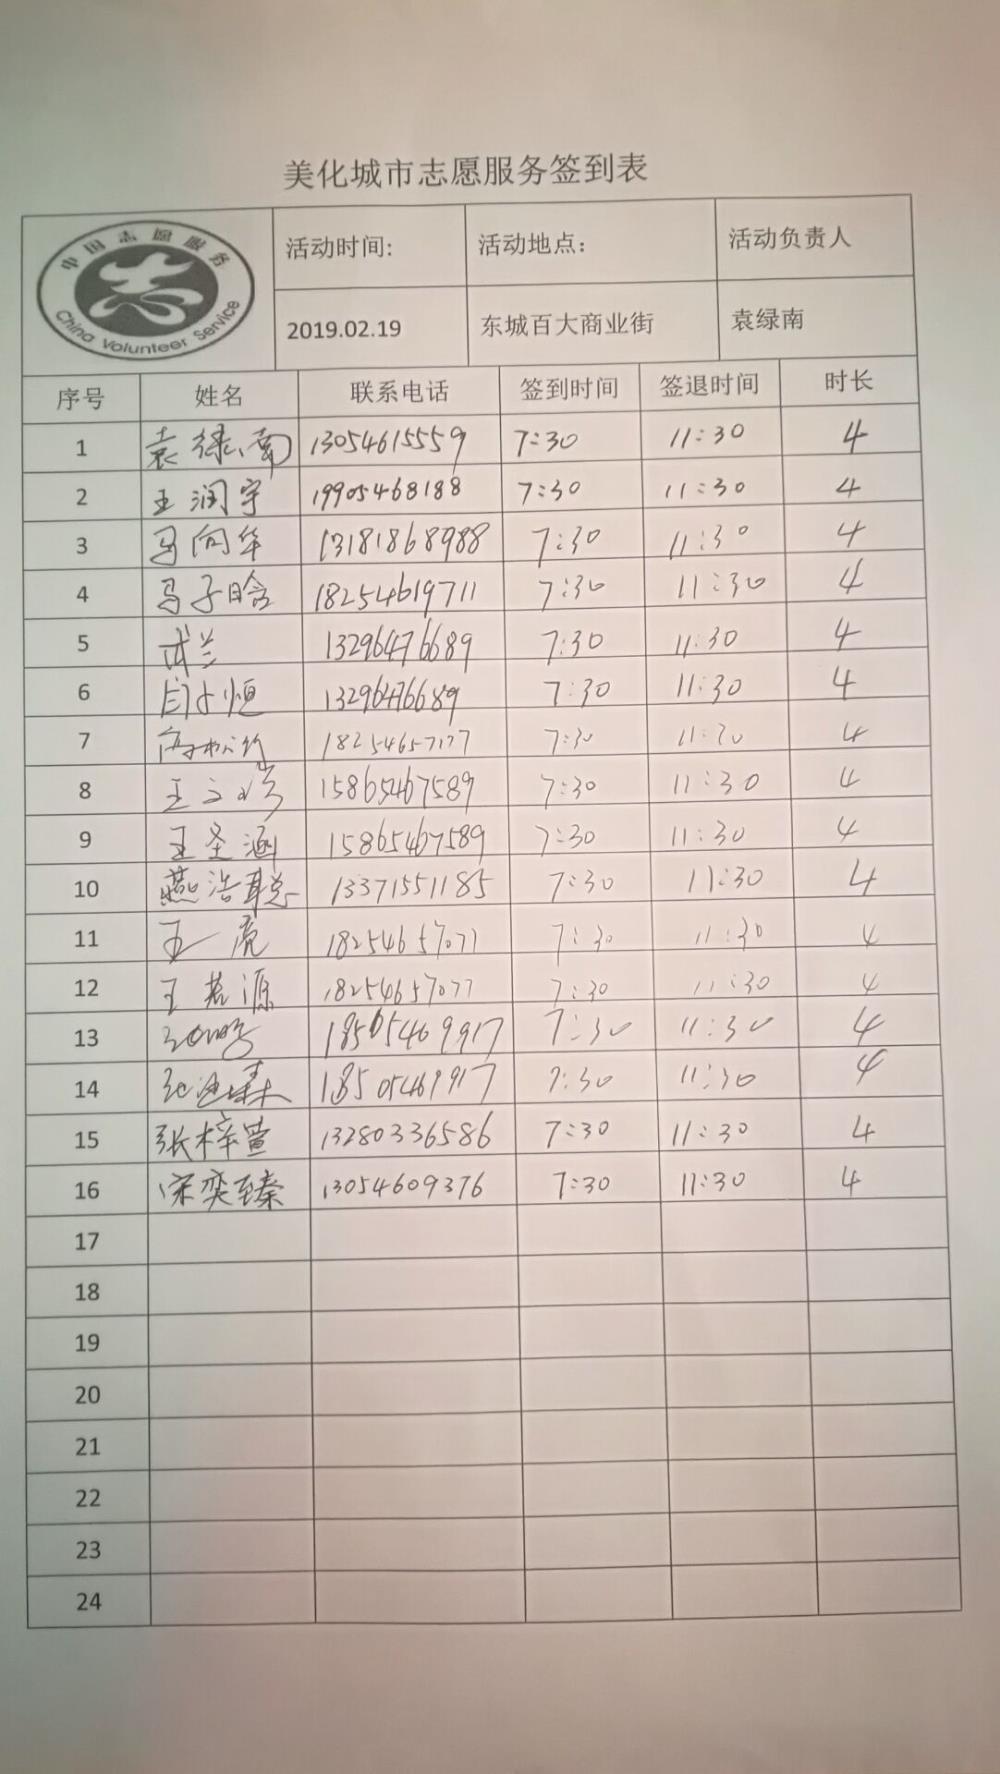 美化城市志愿服务签到表
中国志愿服务
China Volunteer Service
活动时间: 活动地点: 活动负责人
2019.02.19 东城百大商业街 袁绿南
序号 姓名 联系电话 签到时间 签退时间 时长
1 袁绿南 13054615559 7:30 11:30 4
2 王润宇 19905468188 7:30 11:30 4
3 马向华 13181868988 7:30 11:30 4
4 马子晗 18254619711 7:30 11:30 4
5 武兰 13296476689 7:30 11:30 4
6 13296476689 7:30 11:30 4
7 7:30 11:30 4
8 王 15865467589 7:30 11:30 4
9 王圣涵 15865467589 7:30 11:30 4
10 燕浩聪 13371551185 7:30 11:30 4
11 18254657077 7:30 11:30 4
12 王若源 18254657077 7:30 11:30 4
13 18505469917 7:30 11:30 4
14 18505469917 7:30 11:30 4
15 张梓萱 13280336586 7:30 11:30 4
16 宋奕臻 13054609376 7:30 11:30 4
17
18
19
20
21
22
23
24